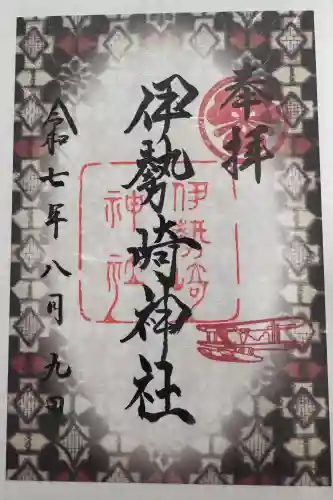 奉拝
伊勢崎神社
伊勢崎
神社
令和七年八月九日